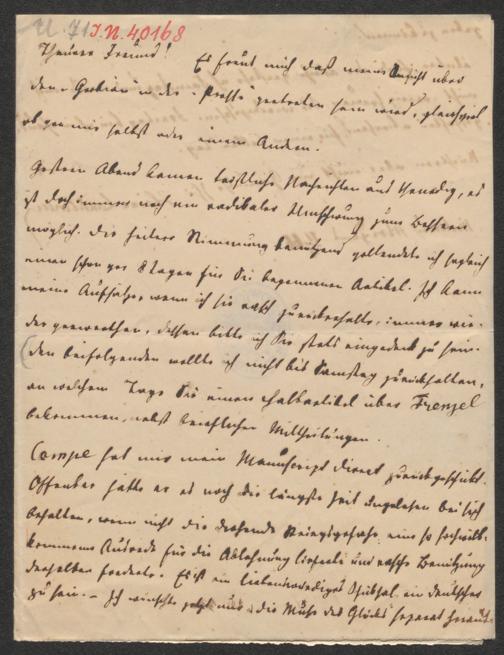 I.N. 40168
Theurer Freund! Es freut mich daß meine Ansicht über
den "Grobian" in der "Presse" vertreten sein wird, gleichviel
ob von mir selbst oder einem Andern.
Gestern Abend kamen tröstliche Nachrichten aus Venedig, es
ist doch immer noch ein radikaler Umschwung zum Bessern
möglich. Die heitere Stimmung benützend vollendete ich sogleich
einen schon vor 8 Tagen für Sie begonnenen Artikel. Ich kann
meine Aufsätze, wenn ich sie rasch zurückerhalte, immer wie-
der verwerthen, dessen bitte ich Sie stets eingedenk zu sein.
(den beifolgenden wollte ich nicht bis Samstag zurückhalten,
an welchem Tage Sie einen Halbartikel über Frenzel
bekommen, nebst brieflichen Mittheilungen.
Campe hat mir mein Manuscript direct zurückgeschickt.
Offenbar hätte er es noch die längste Zeit ungelesen bei sich
behalten, wenn nicht die drohende Kriegsgefahr eine so hochwill-
kommene Ausrede für die Ablehnung lieferte und rasche Benützung
derselben forderte. Es ist ein liebenswürdiges Schicksal ein deutscher
zu sein. – Ich wünschte jetzt nur die Muße des Glücks separat